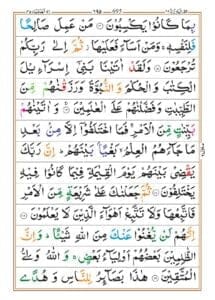 بِمَا كَانُوۡا يَكۡسِبُوۡنَ ۞ مَنۡ عَمِلَ صَالِحًا
فَلِنَفۡسِهٖ‌ۚ وَمَنۡ اَسَآءَ فَعَلَيۡهَا‌ ثُمَّ اِلٰى رَبِّكُمۡ
تُرۡجَعُوۡنَ ۞ وَلَقَدۡ اٰتَيۡنَا بَنِىۡۤ اِسۡرَآءِيۡلَ
الۡكِتٰبَ وَالۡحُكۡمَ وَالنُّبُوَّةَ وَرَزَقۡنٰهُمۡ مِّنَ
الطَّيِّبٰتِ وَفَضَّلۡنٰهُمۡ عَلَى الۡعٰلَمِيۡنَ‌ۚ ۞ وَاٰتَيۡنٰهُمۡ
بَيِّنٰتٍ مِّنَ الۡاَمۡرِ‌ۚ فَمَا اخۡتَلَفُوۡۤا اِلَّا مِنۡۢ بَعۡدِ
مَا جَآءَهُمُ الۡعِلۡمُ ۙ بَغۡيًاۢ بَيۡنَهُمۡ‌ؕ اِنَّ رَبَّكَ
يَقۡضِىۡ بَيۡنَهُمۡ يَوۡمَ الۡقِيٰمَةِ فِيۡمَا كَانُوۡا فِيۡهِ
يَخۡتَلِفُوۡنَ ۞ ثُمَّ جَعَلۡنٰكَ عَلٰى شَرِيۡعَةٍ مِّنَ الۡاَمۡرِ
فَاتَّبِعۡهَا وَلَا تَتَّبِعۡ اَهۡوَآءَ الَّذِيۡنَ لَا يَعۡلَمُوۡنَ ۞
اِنَّهُمۡ لَنۡ يُّغۡنُوۡا عَنۡكَ مِنَ اللّٰهِ شَيۡـــًٔا‌ ؕ وَ اِنَّ
الظّٰلِمِيۡنَ بَعۡضُهُمۡ اَوۡلِيَآءُ بَعۡضٍ‌ ۚ وَاللّٰهُ وَلِىُّ
الۡمُتَّقِيۡنَ ۞ هٰذَا بَصَآئِرُ لِلنَّاسِ وَهُدًى